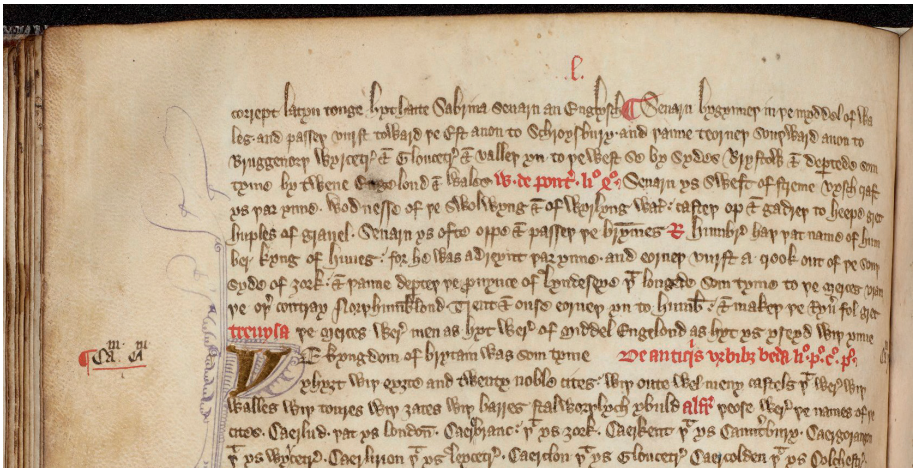 l.
corrept latyn tonge hyt hatte Sabrina seuarn an Englysch ¶ Seuarn bygynneþ in þe myddel of Wa
les· and passeþ vurst toward þe Est anon to Schroysbury· and þanne teorneþ souþward anon to
Bruggenorþ Wyrcetre· & Gloucetre· & valleþ yn to þe west se by sydes Brystow & departede som
tyme by twene Engelond & wales W· de pont· li° ·4°· Seuarn ys sweft of streme vysch craft
ys þar ynne· wodnesse of þe swolwyng & of wyrlyng water· casteþ op & gadreþ to heepe gret
huples of grauel· Seuarn ys ofte oppe & passeþ þe brymmes R Humbre haþ þat name of hum
ber kyng of hunes· for he was adreynt þar ynne· and eorneþ vurst a· crook out of þe souþ
syde of ȝork· & þanne depteþ þe prouynce of Lyndeseye þt longede som tyme to þe merces vram
þe oþer contray Norþhumberlond· Trent & ouse eorneþ yn to humber· & makeþ þe ryuer fol gret
treuysa þe merces wer men as hyt wer of myddel Engelond as hyt ys yseyd wiþ ynne
Þ E kyngdom of brytayn was som tyme De antiqis vrbibz beda li°· p°· c°· p°·
yhyȝt wiþ eyȝte and twenty noble cites· wiþ oute wel meny castels þt wer wiþ
walles wiþ toures wiþ ȝates wiþ barres stalworþlych ybuld alfr þeose wer þe names of þe
cites· Caerlud· þat ys london· Caerbranc· þt ys ȝork· Caerkent þt ys Cauntrbury· Caergorangon
þt ys Wycetre· Caerlirion þt ys leycetre· Caerclou þt ys Gloucetre Caercolden þt ys Colchestre
¶ Cam Cam